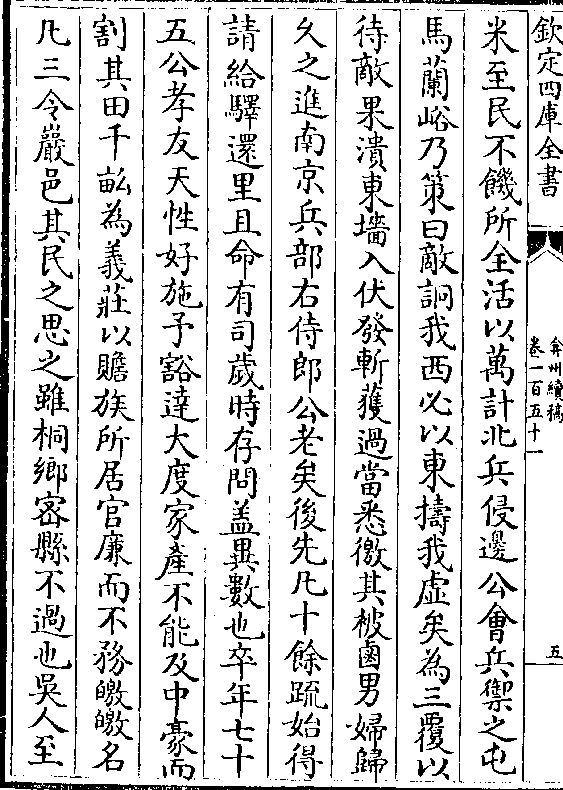 欽定四庫全書
弇州續稿
卷一百五十一
五
米至民不饑所全活以萬計北兵侵邊公會兵禦之屯
馬蘭峪乃策曰敵詗我西必以東擣我虚矣為三覆以
待敵果潰東墻入伏發斬獲過當悉徼其被鹵男婦歸
久之進南京兵部右侍郎公老矣後先凡十餘疏始得
請給驛還里且命有司歲時存問盖異數也卒年七十
五公孝友天性好施予豁達大度家產不能及中豪而
割其田千畝為義莊以贍族所居官廉而不務皦皦名
凡三令嚴邑其民之思之雖桐鄉宻縣不過也吳人至